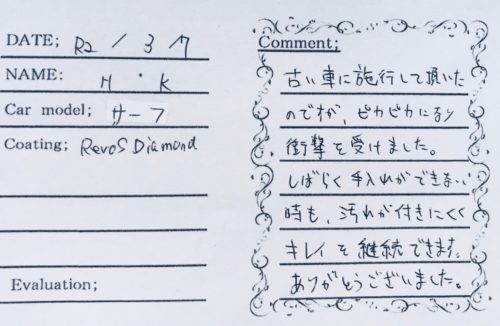 DATE; R2 / 3 7
NAME: H ・ K
Car model; サーフ
Coating; RevoS Diamond
Evaluation;
Comment;
古い車に施行して頂いた
のですが、ピカピカになり
衝撃を受けました。
しばらく手入れができない
時も、汚れが付きにくく
キレイを継続できます。
ありがとうございました。